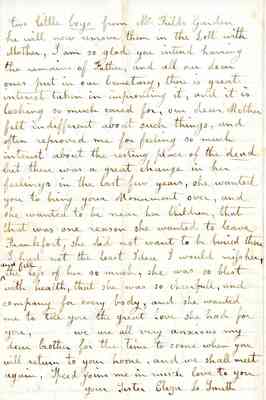 two little boys from Mr. Fields Garden
he will now remove them in the Lott with
Mother, I am so glad you intend having
the remains of Father, and all our dear
ones put in our Cemetary, there is great
interest taken in improving it, and it is
looking so much cared for, our dear Mother
felt indifferent about such things, and
often reproved me for feeling so much
interest about the resting place of the dead
but there was a great change in her
feelings in the last few years, she wanted
you to bring your Monument over, and
she wanted to be near her Children, that
that was one reason she wanted to leave
Frankfort, she did not want to be buried there
I had not the least Idea I would
and feel
the loss of her so much, she was so blest
with health, that she was so cheerful, and
company for every body, and she wanted
me to tell you the great love she had for
you, we are all very anxious my
dear brother for the time to come when you
will return to your home, and we shall meet
again, Speed joins me in much love to you
your Sister Eliza L. Smith